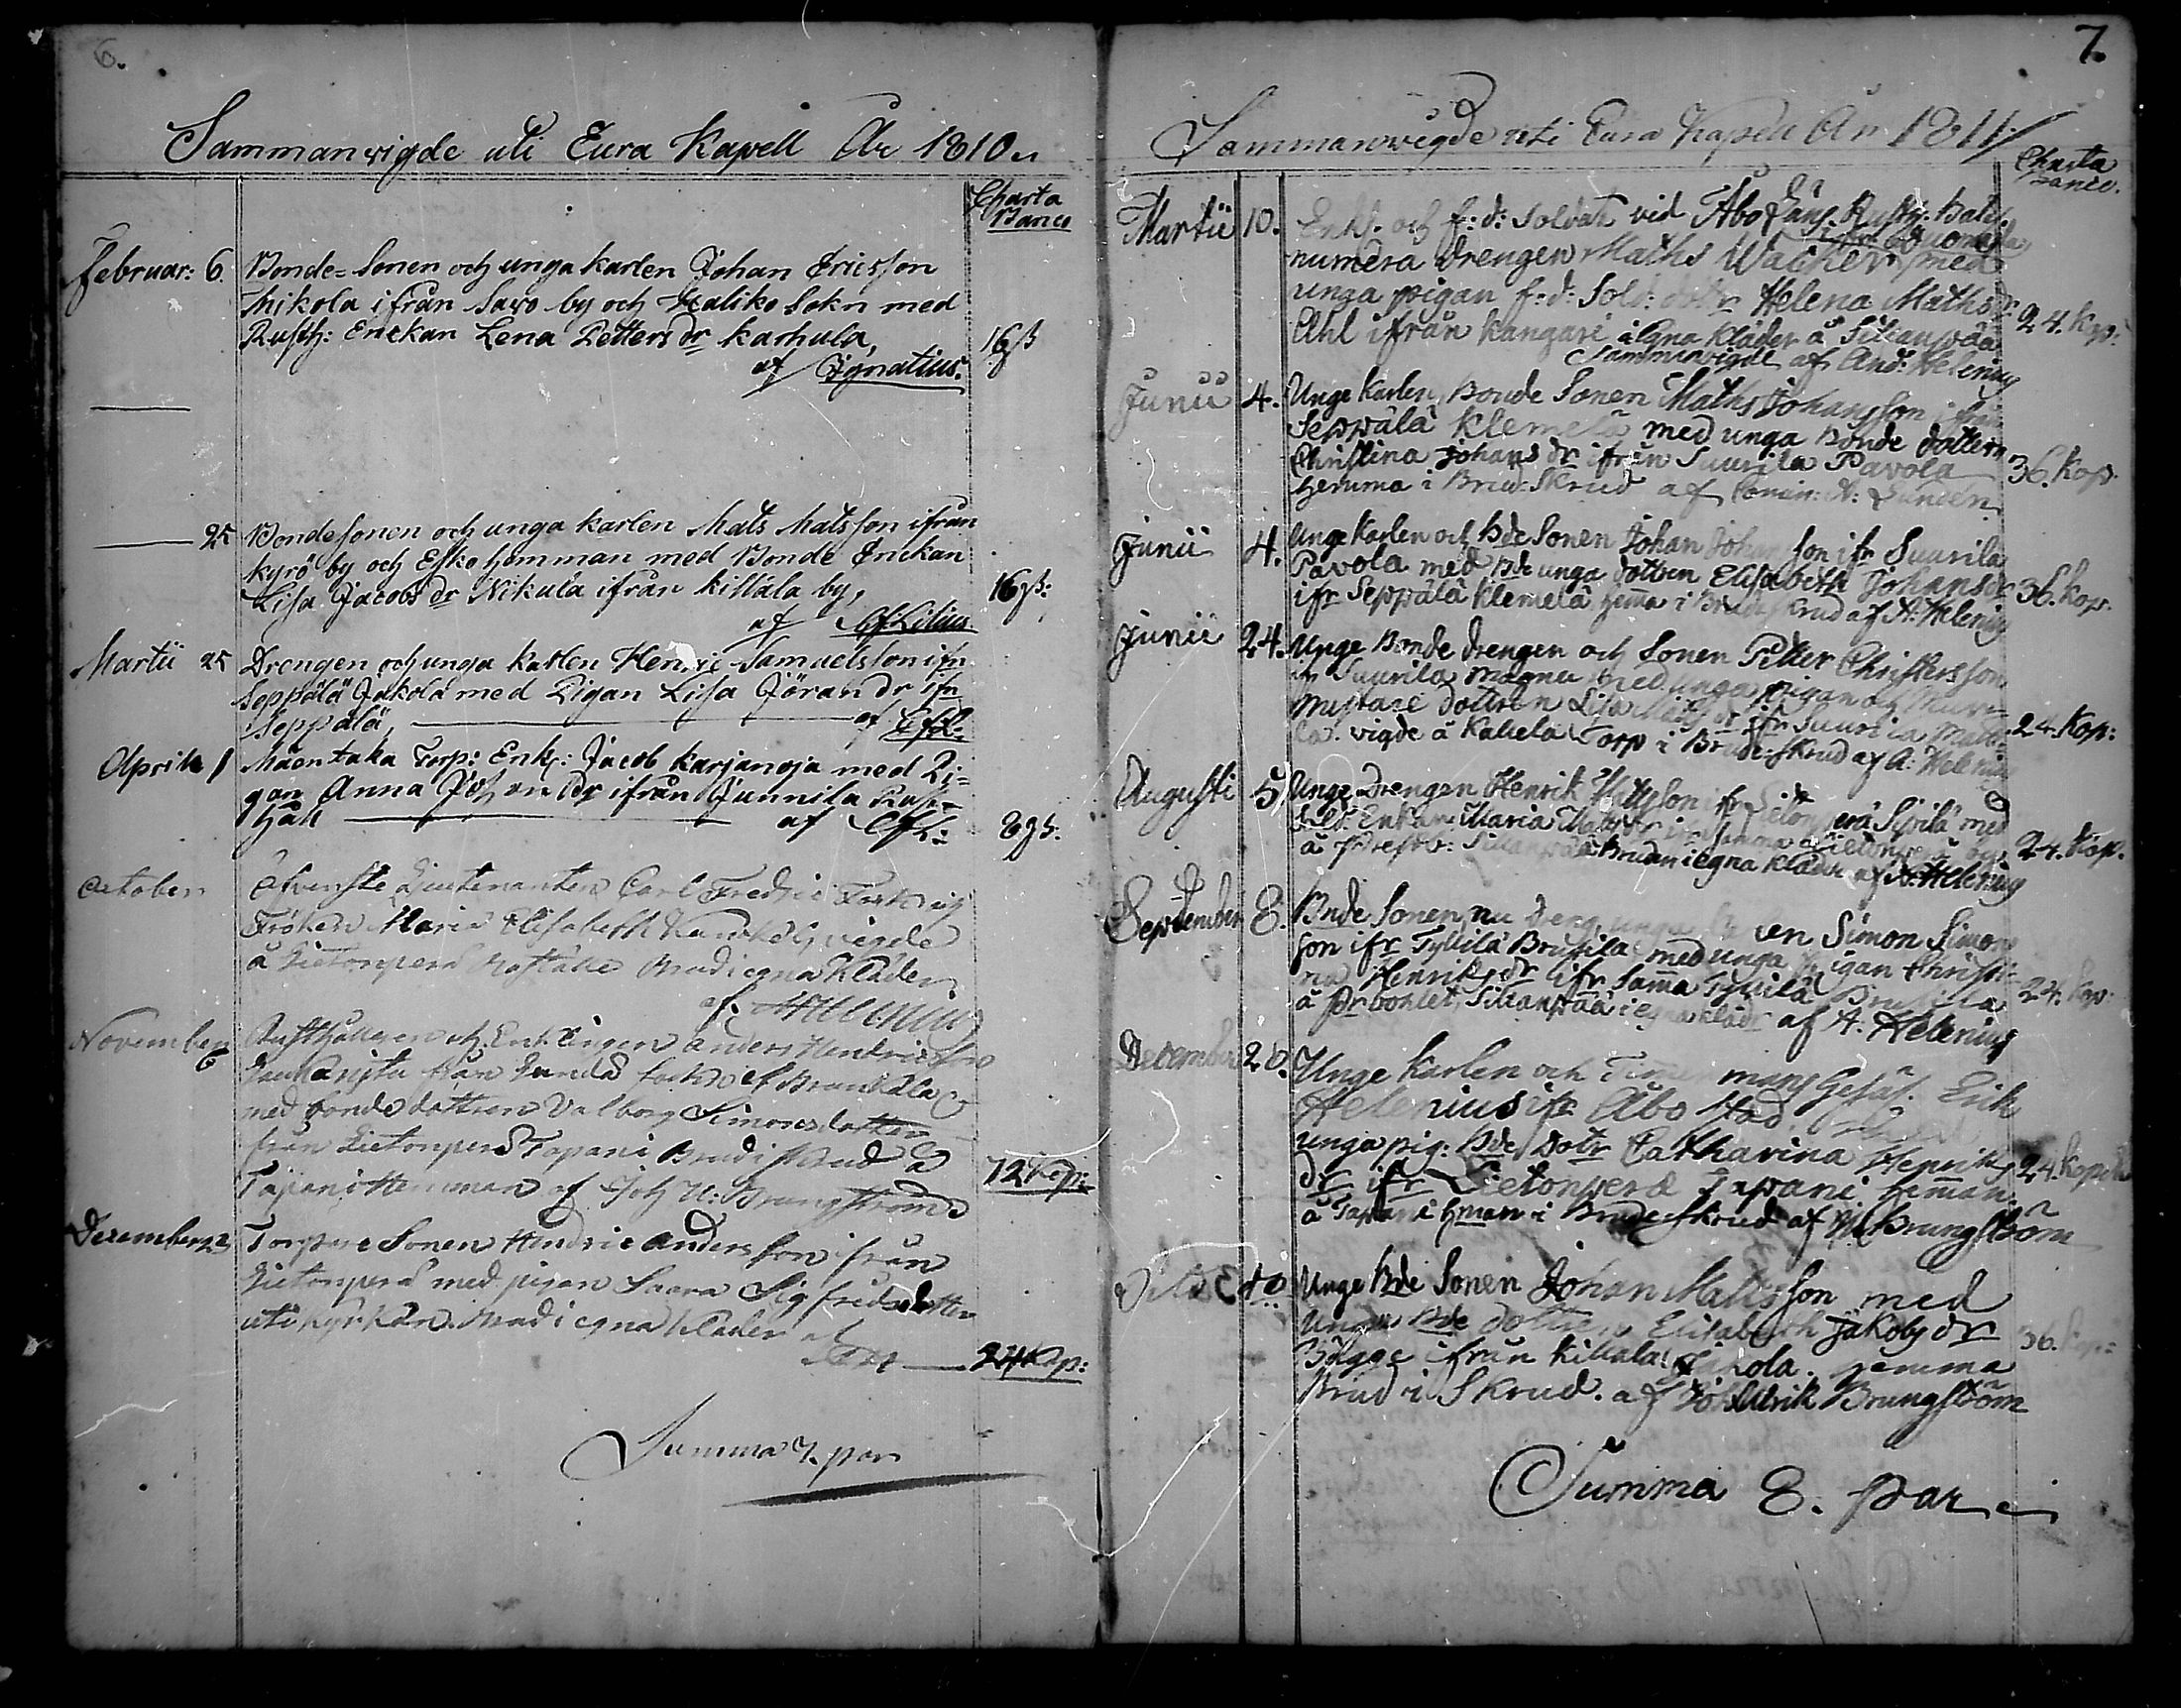 6.
Sammanvigde uti Eura Kapell År 1810
Charta
Banco
Februar: 6. Bonde-Sonen och unga karlen Johan Ericsson
Mikola ifrån Saro by och Haliko Sokn med
Rusth: Enckan Lena Petters dr karhula, 16ß
af Ignatius.
25 Bondesonen och unga karlen Mats Matsson ifrån
kyrö by och Esko Hemman med Bonde Enckan
Lisa Jacobs dr Nikula ifrån kittäla by, 16ß:
af Lilius
Martii 25 Drengen och unga karlen Henric Samuelsson ifn
Seppälä Jakola med Pigan Lisa Jöran dr ifn
Seppälä, af
Aprill 1 Mäentaka Torp: Enkl: Jacob karjanoja med Pi=
gan Anna Joh an Dr ifrån Junnila Rust=
håll af 8ß.
October Lieutenanten Carl Fredric
Fröken Maria Elisabeth vigde
å Lietonperä Brud i egna Kläder
af Helenius
November 6 Rusthållaren och Enklingen Anders Hendricsson
från
med bonde dottren Valborg Simonsdotter
från Lietonperä Tapani Brud i skrud å
Tapani Hemman af Joh U: Brungström 72 Kop:
December Torpare Sonen Hendric Andersson från
Lietonperä med pigan Saara Sigfridsdotter
uti kyrkan Brud i egna kläder af
24 Kop:
Summa 7. par
7.
Sammanvigde uti Eura Kapell År 1811
Charta
Banco.
Martii 10. Enkl. och f:d: Soldat vid Åbo
numera Drengen Maths Wacker med
unga pigan f:d: Sold: dottr Helena Maths dr 24. kop:
Ahl ifrån kangari i egna kläder å Sillanpää
Sammanvigde af And: Helenius
Junii 4. Unge karlen, Bonde Sonen Maths Johansson ifrån
Seppälä Klemelä med unga Bonde dottern
Christina Johans dr ifrån Suurila Pavola 36. kop.
hemma i Brud-Skrud af
Junii 4. Unge karlen och Bde Sonen Johan Johansson ifr Suurila
Pavola med Bde unga dottren Elisabeth Johansdr 36. kop.
ifr Seppälä Klemelä hema i Brudeskrud af A: Helenius
Junii 24. Unge Bonde drengen och Sonen Petter Christersson
ifr Suurila med unga pigan och
dottren Lisa ifr Suurila
vigde å Torp i Brude-skrud af A: Helenius 24. Kop:
Augusti 5 Unge Drengen Henrik Mattsson ifr Lietonperä Sipilä med
Enkan Maria ifr Lietonperä by
å Sillanpää Bruden i egna kläder af A: Helenius 24. Kop.
September 8. Bnde Sonen nu Simon Simons
son ifr Tyllilä med unga Pigan Christi-
na Henriks dr ifr Sama Tyllilä 24. kop:
å Prbohlet Sillanpää i egna kläder af A: Helenius
December 26. Unge karlen och Timermans Gesäl. Erik
Helenius ifr Åbo Stad
unga pig: Bde Dotr Catharina Henriks 24. Kopek
dr ifr Lietonperä Tapani heman
å Tapani Hman i Brudeskrud af JUBrungström
Unge Bde Sonen Johan Mattsson med
Unga Bde dottren Elisabeth Jakobs dr 36. kop:
Bägge ifrån Kittala Jakola. hemma
Brud i Skrud. af Joh Ulrik Brungström
Summa 8. par